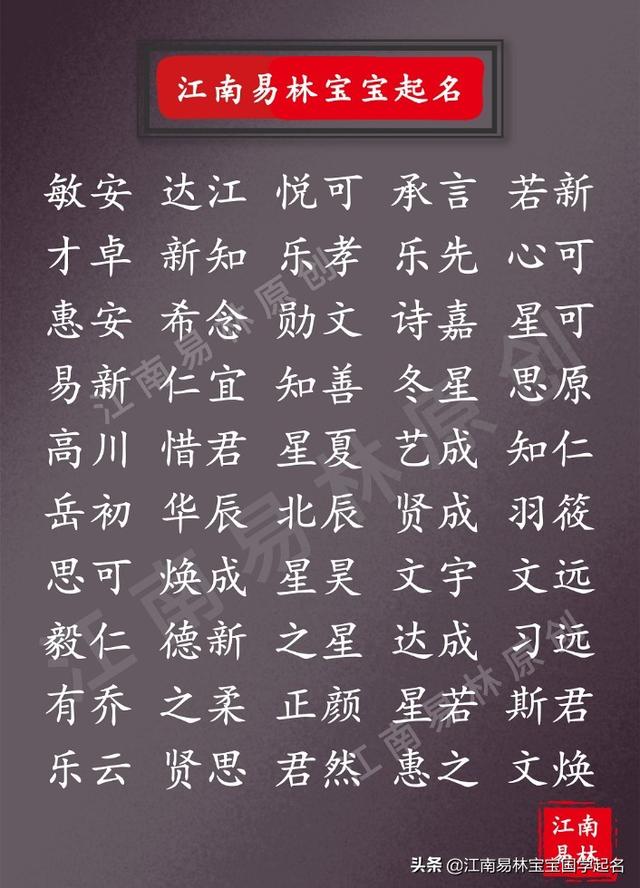 江南易林宝宝起名
敏安 达江 悦可 承言 若新
才卓 新知 乐孝 乐先 心可
惠安 希念 勋文 诗嘉 星可
易新 仁宜 知善 冬星 思原
高川 惜君 星夏 艺成 知仁
岳初 华辰 北辰 贤成 羽筱
思可 焕成 星昊 文宇 文远
毅仁 德新 之星 达成 习远
有乔 之柔 正颜 星若 斯君
乐云 贤思 君然 惠之 文焕
江南易林原创
江南易林原创
江南易林原创
江南
易林
头条 @江南易林宝宝国学起名